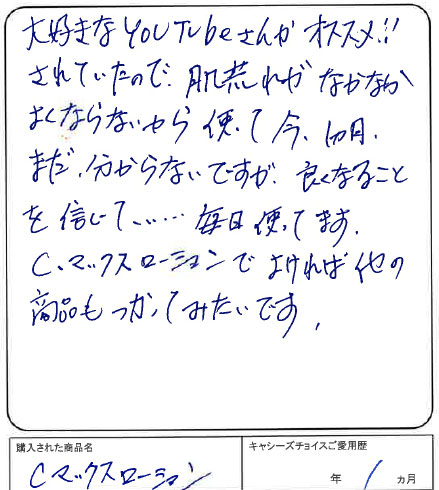 大好きなYOUTubeさんが オススメ!!
されていたので、肌荒れが なかなか
よくならないから 使って 今、1ヵ月、
まだ、分からないですが、良くなること
を 信じて、…… 毎日 使ってます。
C、マックスローションで よければ 他の
商品も つかってみたいです、
購入された商品名
Cマックスローション
キャシーズチョイスご愛用歴
年 1 ヵ月